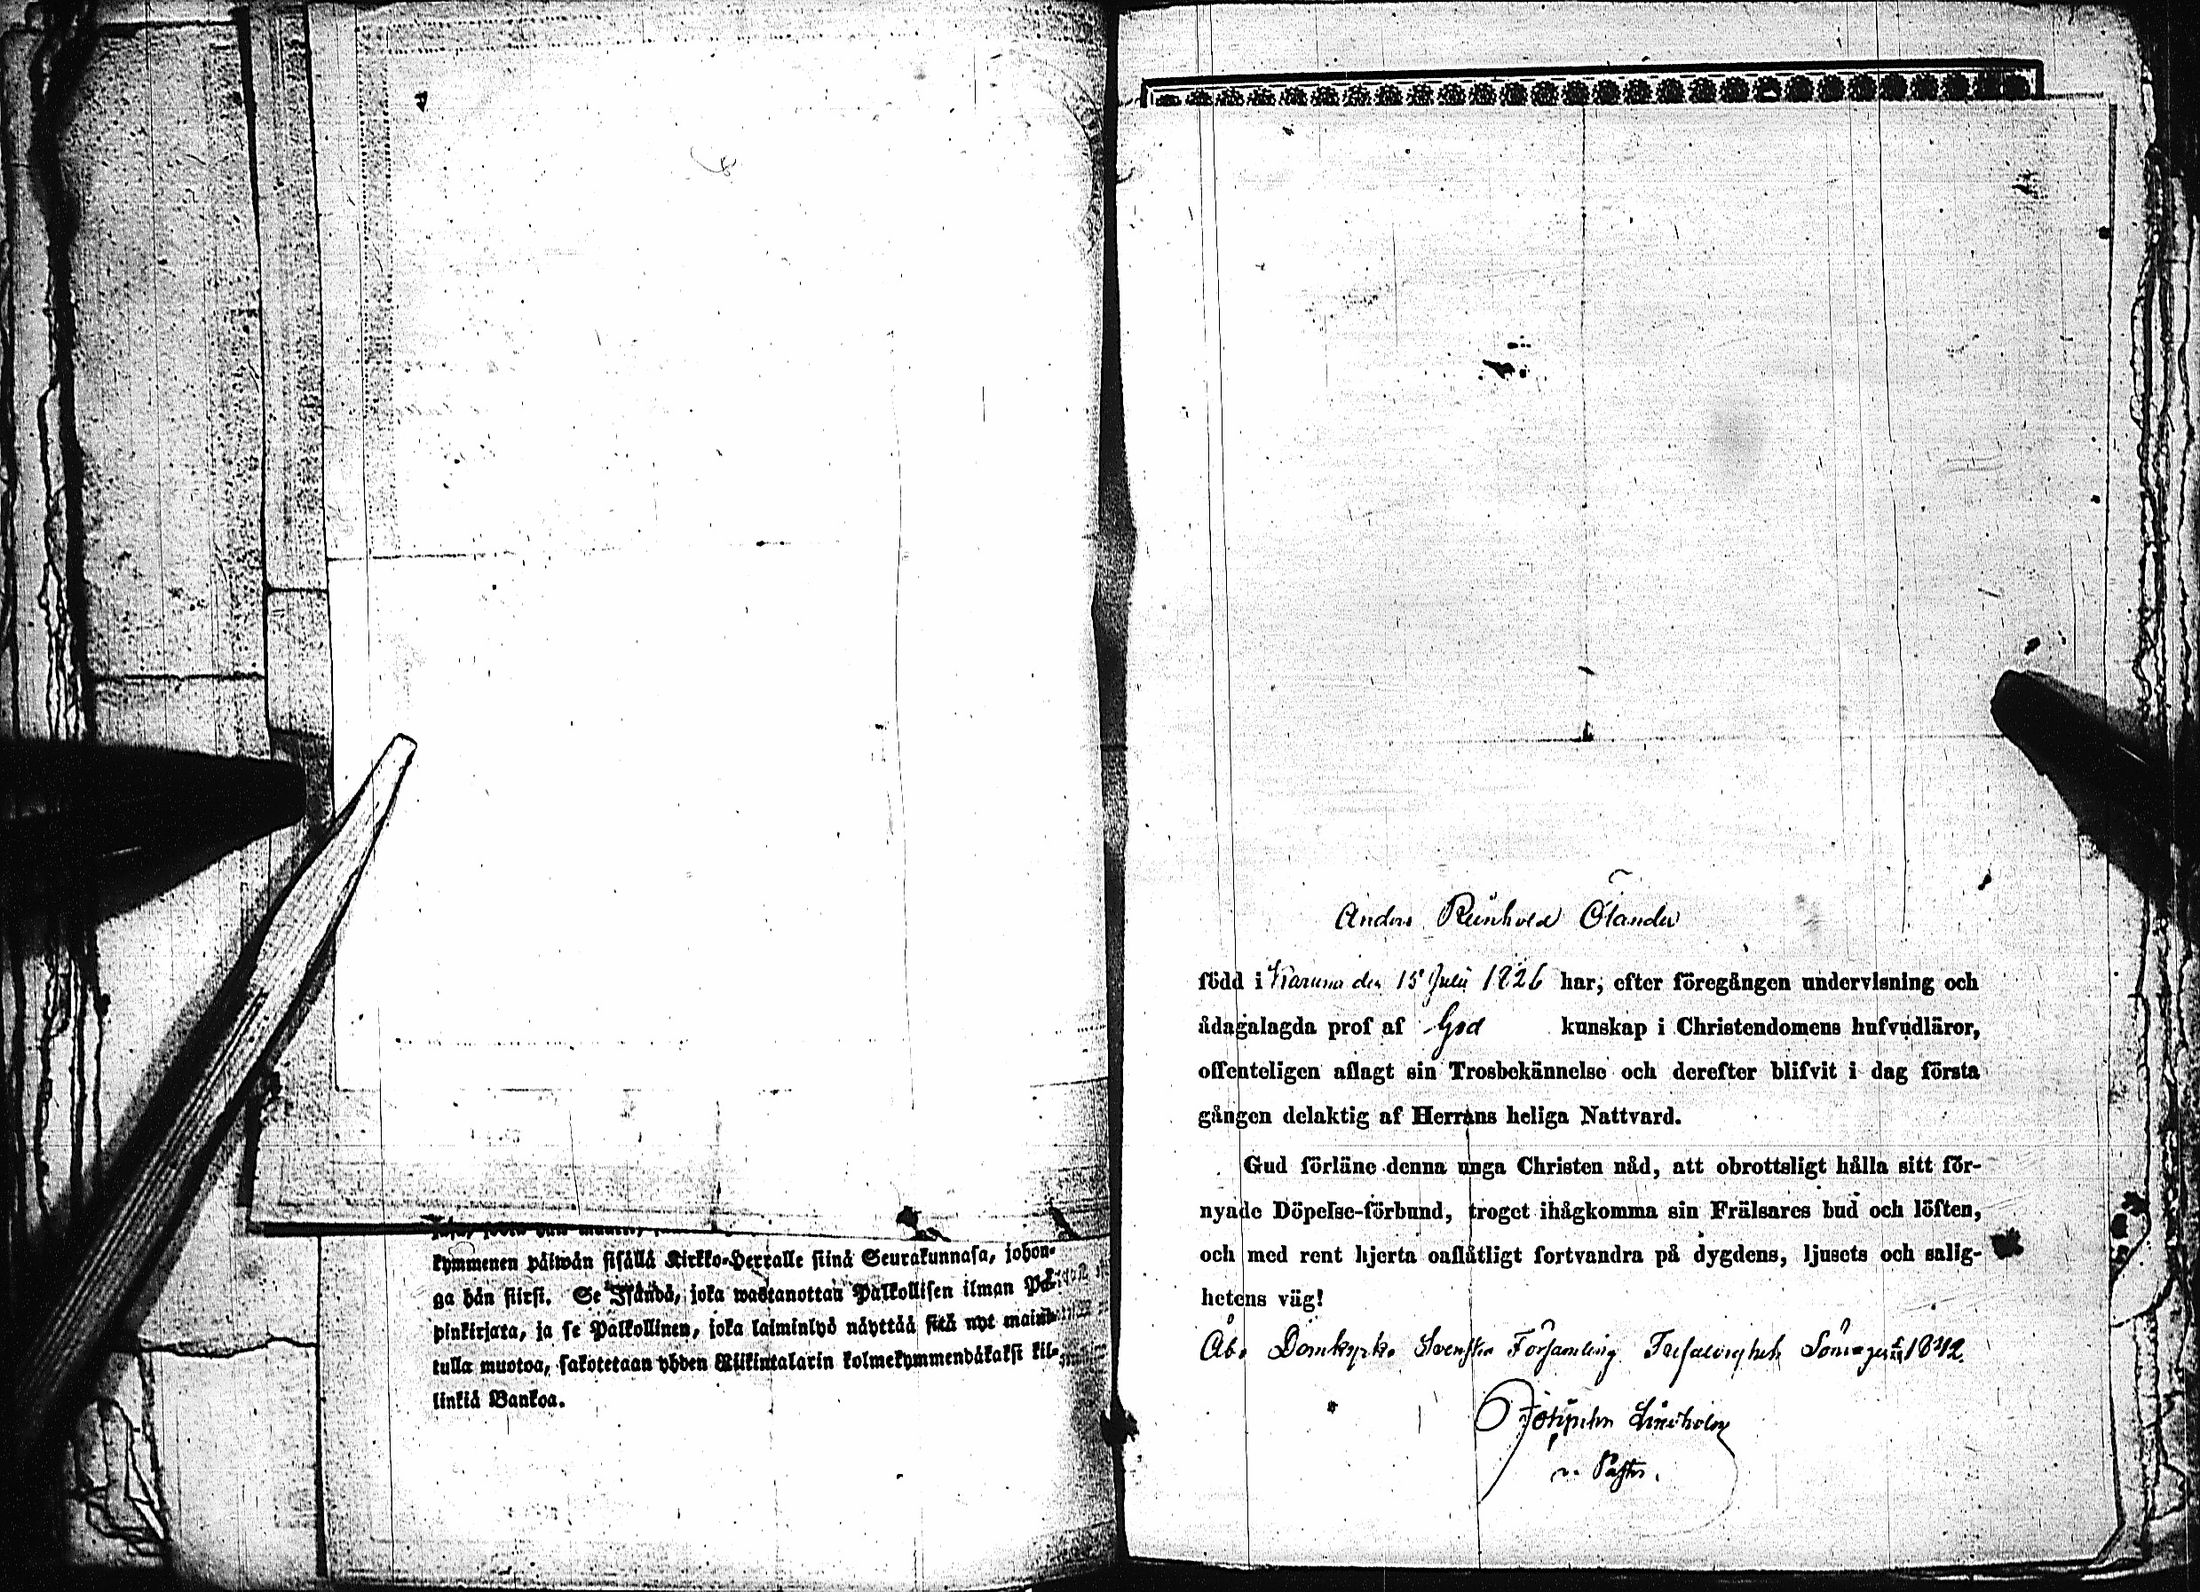 kymmenen päiwän sisällä Kirkko-Herralle siinä Seurakunnasa, johon-
ga hän siirsi. Se Isändä, joka wastanottaa Palkollisen ilman Pa-
pinkirjata, ja se Palkollinen, joka laiminlyö näyttää sitä nyt mainit-
tulla muotoa, sakotetaan yhden Riikintalarin kolmekymmendäkaksi kil-
linkiä Bankoa.
Anders Reinhold Ölander
född i Karuna den 15 Julii 1826 har, efter föregången undervisning och
ådagalagda prof af God kunskap i Christendomens hufvudläror,
offenteligen aflagt sin Trosbekännelse och derefter blifvit i dag första
gången delaktig af Herrans heliga Nattvard.
Gud förläne denna unga Christen nåd, att obrottsligt hålla sitt för-
nyade Döpelse-förbund, troget ihågkomma sin Frälsares bud och löften,
och med rent hjerta oaflåtligt fortvandra på dygdens, ljusets och salig-
hetens väg!
Åbo Domkyrko Svenska Församling Trefaldighets 1842.
Lindholm
v. Pastor.